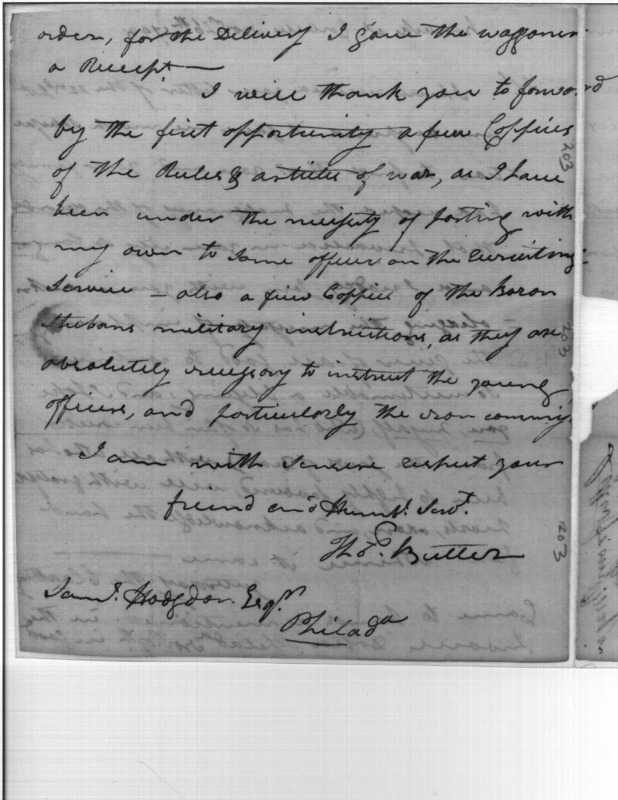 order, for the Delivery I gave the waggoner
a Recept. —
I will thank you to forward
by the first opportunity a few Coppies
of the Rules & articles of war, as I have
been under the necessity of parting with
my own to some officer on the recruiting
Service — also a few Coppies of the Baron
Stubans military instructions, as they are
absolutely necessary to instruct the young
officers, and particularly the non commis.
I am with sincere respect your
friend and Humbl. Servt.
Thos. Butler
Saml. Hodgdon Esqr.
Philada
203
203
203